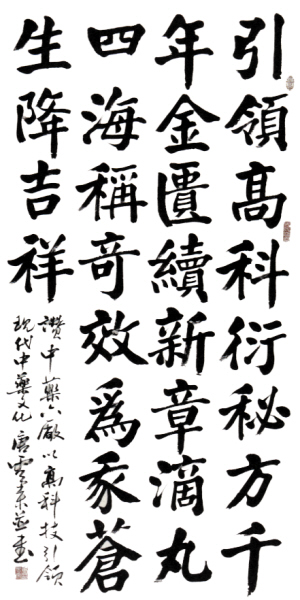 引領高科衍秘方千
年金匱續新章滴丸
四海稱奇效爲乑蒼
生降吉祥
讚中藥六廠以高科技引領
現代中藥文化唐雲来並書